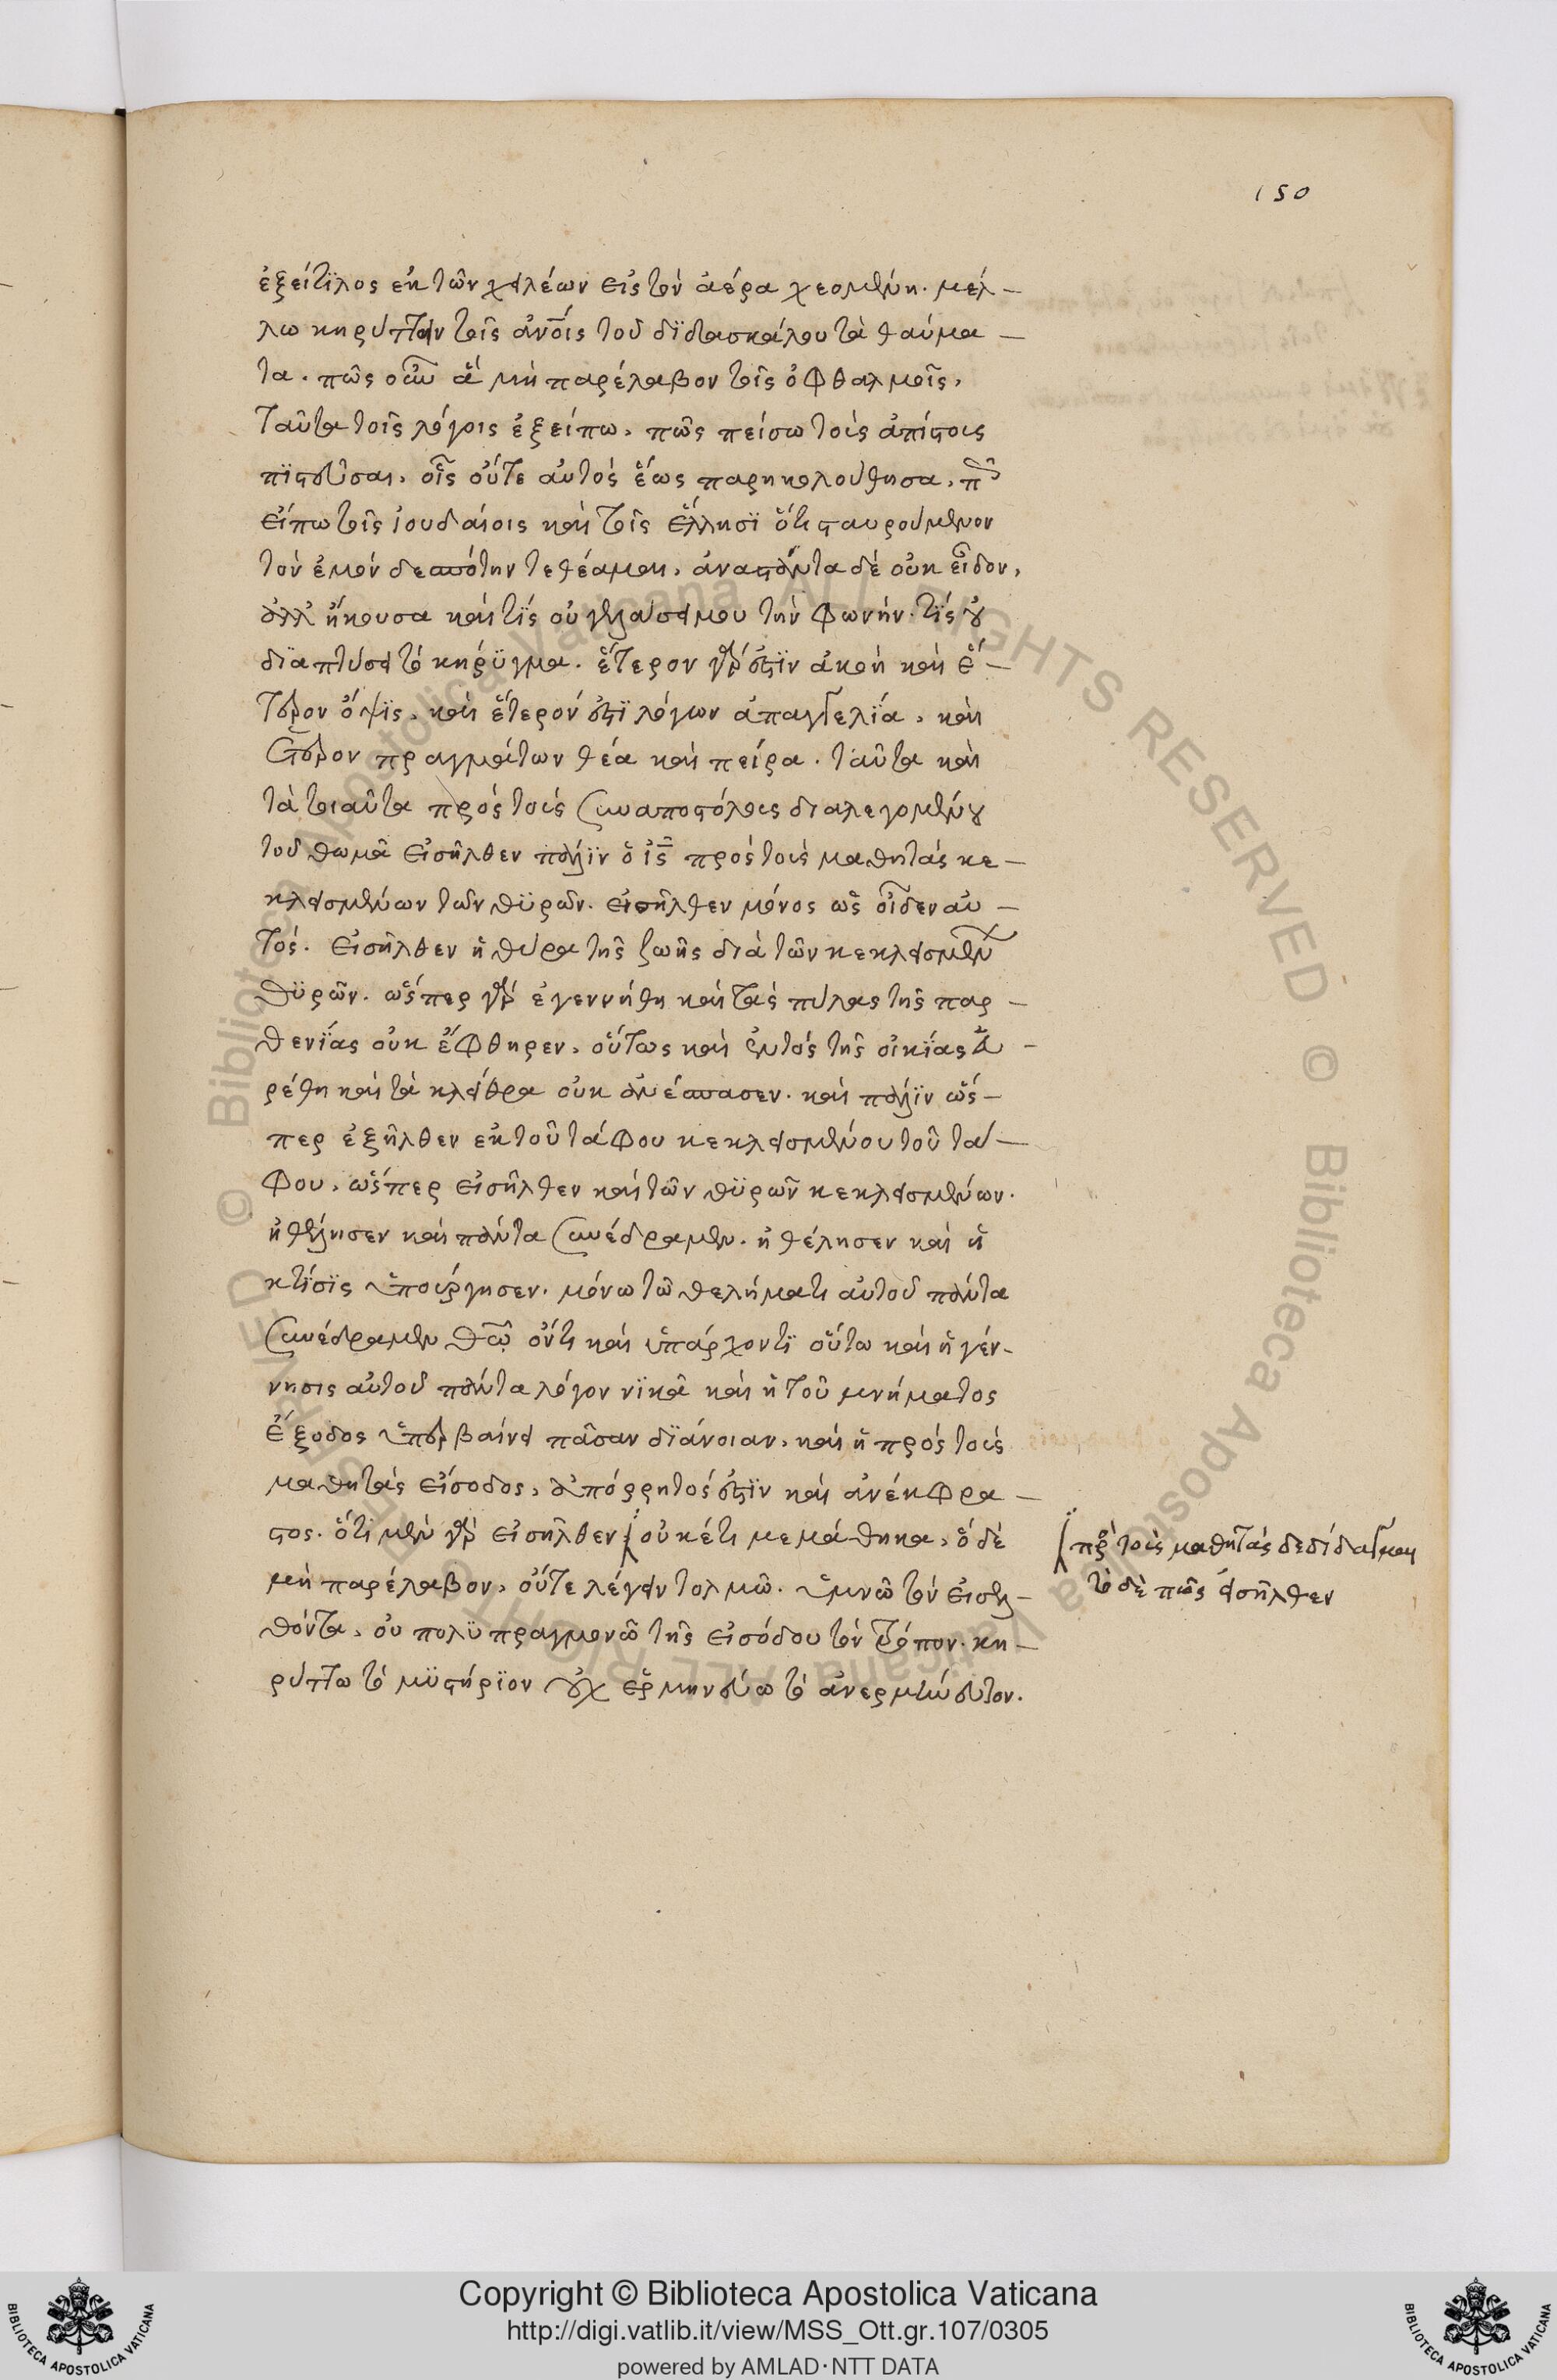 150
ἐξείτϊλος ἐκ τῶν χειλέων εἰς τὸν ἀέρα χεομένη. μέλ –
λω κηρύττειν τοῖς ἀνοις τοῦ δϊδασκάλου τὰ θαύμα –
τα. πῶς οὖν ἃ μὴ παρέλαβον τοῖς ὀφθαλμοῖς,
ταῦτα τοῖς λόγοις ἐξείπω, πῶς πείσω τοὺς ἀπίστους
πϊστεῦσαι, οἷς οὔτε αὐτὸς ἕως παρηκολούθησα, πῶς
εἴπω τοῖς ἰουδαίοις καὶ τοῖς ἕλλησϊ ὅτι σταυρούμενον
τὸν ἐμὸν δεσπότην τεθέαμαι, ἀναστάντα δὲ οὐκ εἶδον,
ἀλλ' ἤκουσα καὶ τίς οὐ γελάσει μου τὴν φωνήν. τίς οὐ
δϊαπτύσει τὸ κήρϋγμα. ἕτερον γάρ ἐστϊν ἀκοὴ καὶ ἕ –
τερον ὄψϊς, καὶ ἕτερόν ἐστϊ λόγων ἀπαγγελΐα, καὶ
ἕτερον πραγμάτων θέα καὶ πείρα. ταῦτα καὶ
τὰ τοιαῦτα πρὸς τοὺς συναποστόλους διαλεγομένου
τοῦ θωμᾶ εἰσῆλθεν πάλϊν ὁ ἰς πρὸς τοὺς μαθητὰς κε –
κλεισμένων τῶν θϋρῶν. εἰσῆλθεν μόνος ὡς οἶδεν αὐ –
τός. εἰσῆλθεν ἡ θύρα τῆς ζωῆς διὰ τῶν κεκλεισμένων
θϋρῶν. ὥσπερ γὰρ ἐγεννήθη καὶ τὰς πύλας τῆς παρ –
θενΐας οὐκ ἔφθηρεν, οὕτως καὶ ἐντὸς τῆς οἰκΐας εὑ –
ρέθη καὶ τὰ κλεῖθρα οὐκ ἀνέσπασεν. καὶ πάλϊν ὥσ –
περ ἐξῆλθεν ἐκ τοῦ τάφου κεκλεισμένου τοῦ τά –
φου, ὥσπερ εἰσῆλθεν καὶ τῶν θϋρῶν κεκλεισμένων.
ἠθέλησεν καὶ πάντα συνέδραμεν. ἠθέλησεν καὶ ἡ
κτίσϊς ὑπούργησεν. μόνω τῶ θελήματι αὐτοῦ πάντα
συνέδραμεν θῶ ὄντι καὶ ὑπάρχοντϊ οὕτω καὶ ἡ γέν –
νησις αὐτοῦ πάντα λόγον νϊκᾶ καὶ ἡ τοῦ μνήματος
ἔξοδος ὑπερβαίνει πᾶσαν δϊάνοιαν, καὶ ἡ πρὸς τοὺς
μαθητὰς εἴσοδος, ἀπόρρητός ἐστϊν καὶ ἀνέκφρα –
στος. ὅτϊ μὲν γὰρ εἰσῆλθεν οὐκέτι μεμάθηκα, ὃ δὲ
μὴ παρέλαβον, οὔτε λέγειν τολμῶ. ὑμνῶ τὸν εἰσελ –
θόντα, οὐ πολϋπραγμονῶ τῆς εἰσόδου τὸν τρόπον. κη –
ρύττω τὸ μϋστήρϊον οὐχ ἑρμηνεύω τὸ ἀνερμήνευτον.
πρὸς τοὺς μαθητὰς δεδίδαγμαι
τὸ δὲ πῶς εἰσῆλθεν
Copyright © Biblioteca Apostolica Vaticana
http://digi.vatlib.it/view/MSS_Ott.gr.107/0305
powered by AMLAD·NTT DATA
BIBLIOTECA APOSTOLICA VATICANA
BIBLIOTECA APOSTOLICA VATICANA
© Biblioteca Apostolica Vaticana ALL RIGHTS RESERVED
© Biblioteca Apostolica Vaticana ALL RIGHTS RESERVED